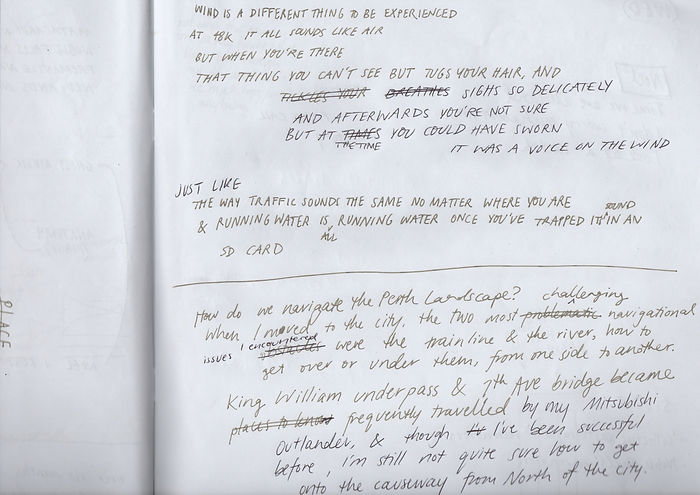 WIND IS A DIFFERENT THING TO BE EXPERIENCED
AT 48K IT ALL SOUNDS LIKE AIR
BUT WHEN YOU'RE THERE
THAT THING YOU CAN'T SEE BUT TUGS YOUR HAIR, AND
TICKLES YOUR BREATHES SIGHS SO DELICATELY
AND AFTERWARDS YOU'RE NOT SURE
BUT AT TIMES YOU COULD HAVE SWORN
THE TIME
IT WAS A VOICE ON THE WIND
JUST LIKE
THE WAY TRAFFIC SOUNDS THE SAME NO MATTER WHERE YOU ARE
SOUND
& RUNNING WATER IS RUNNING WATER ONCE YOU'VE TRAPPED IT IN AN
ALL
SD CARD
How do we navigate the Perth Landscape?
challenging
When I moved to the city, the two most problematic navigational
issues I encountered obstacles were the train line & the river, how to
get over or under them, from one side to another.
King William underpass & 7th Ave bridge became
places to know frequently travelled by my Mitsubishi
Outlander, & though I've been successful
before, i'm still not quite sure how to get
onto the causeway from North of the city.
PLACE